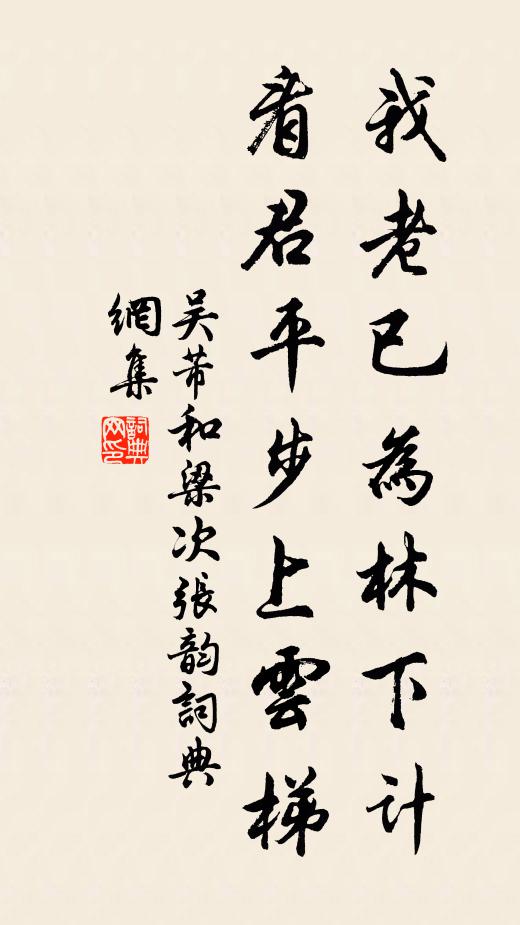 我老已為林下計
看君平步上雲梯
吳芾和梁次張韵詞典
網集
詞典
网印